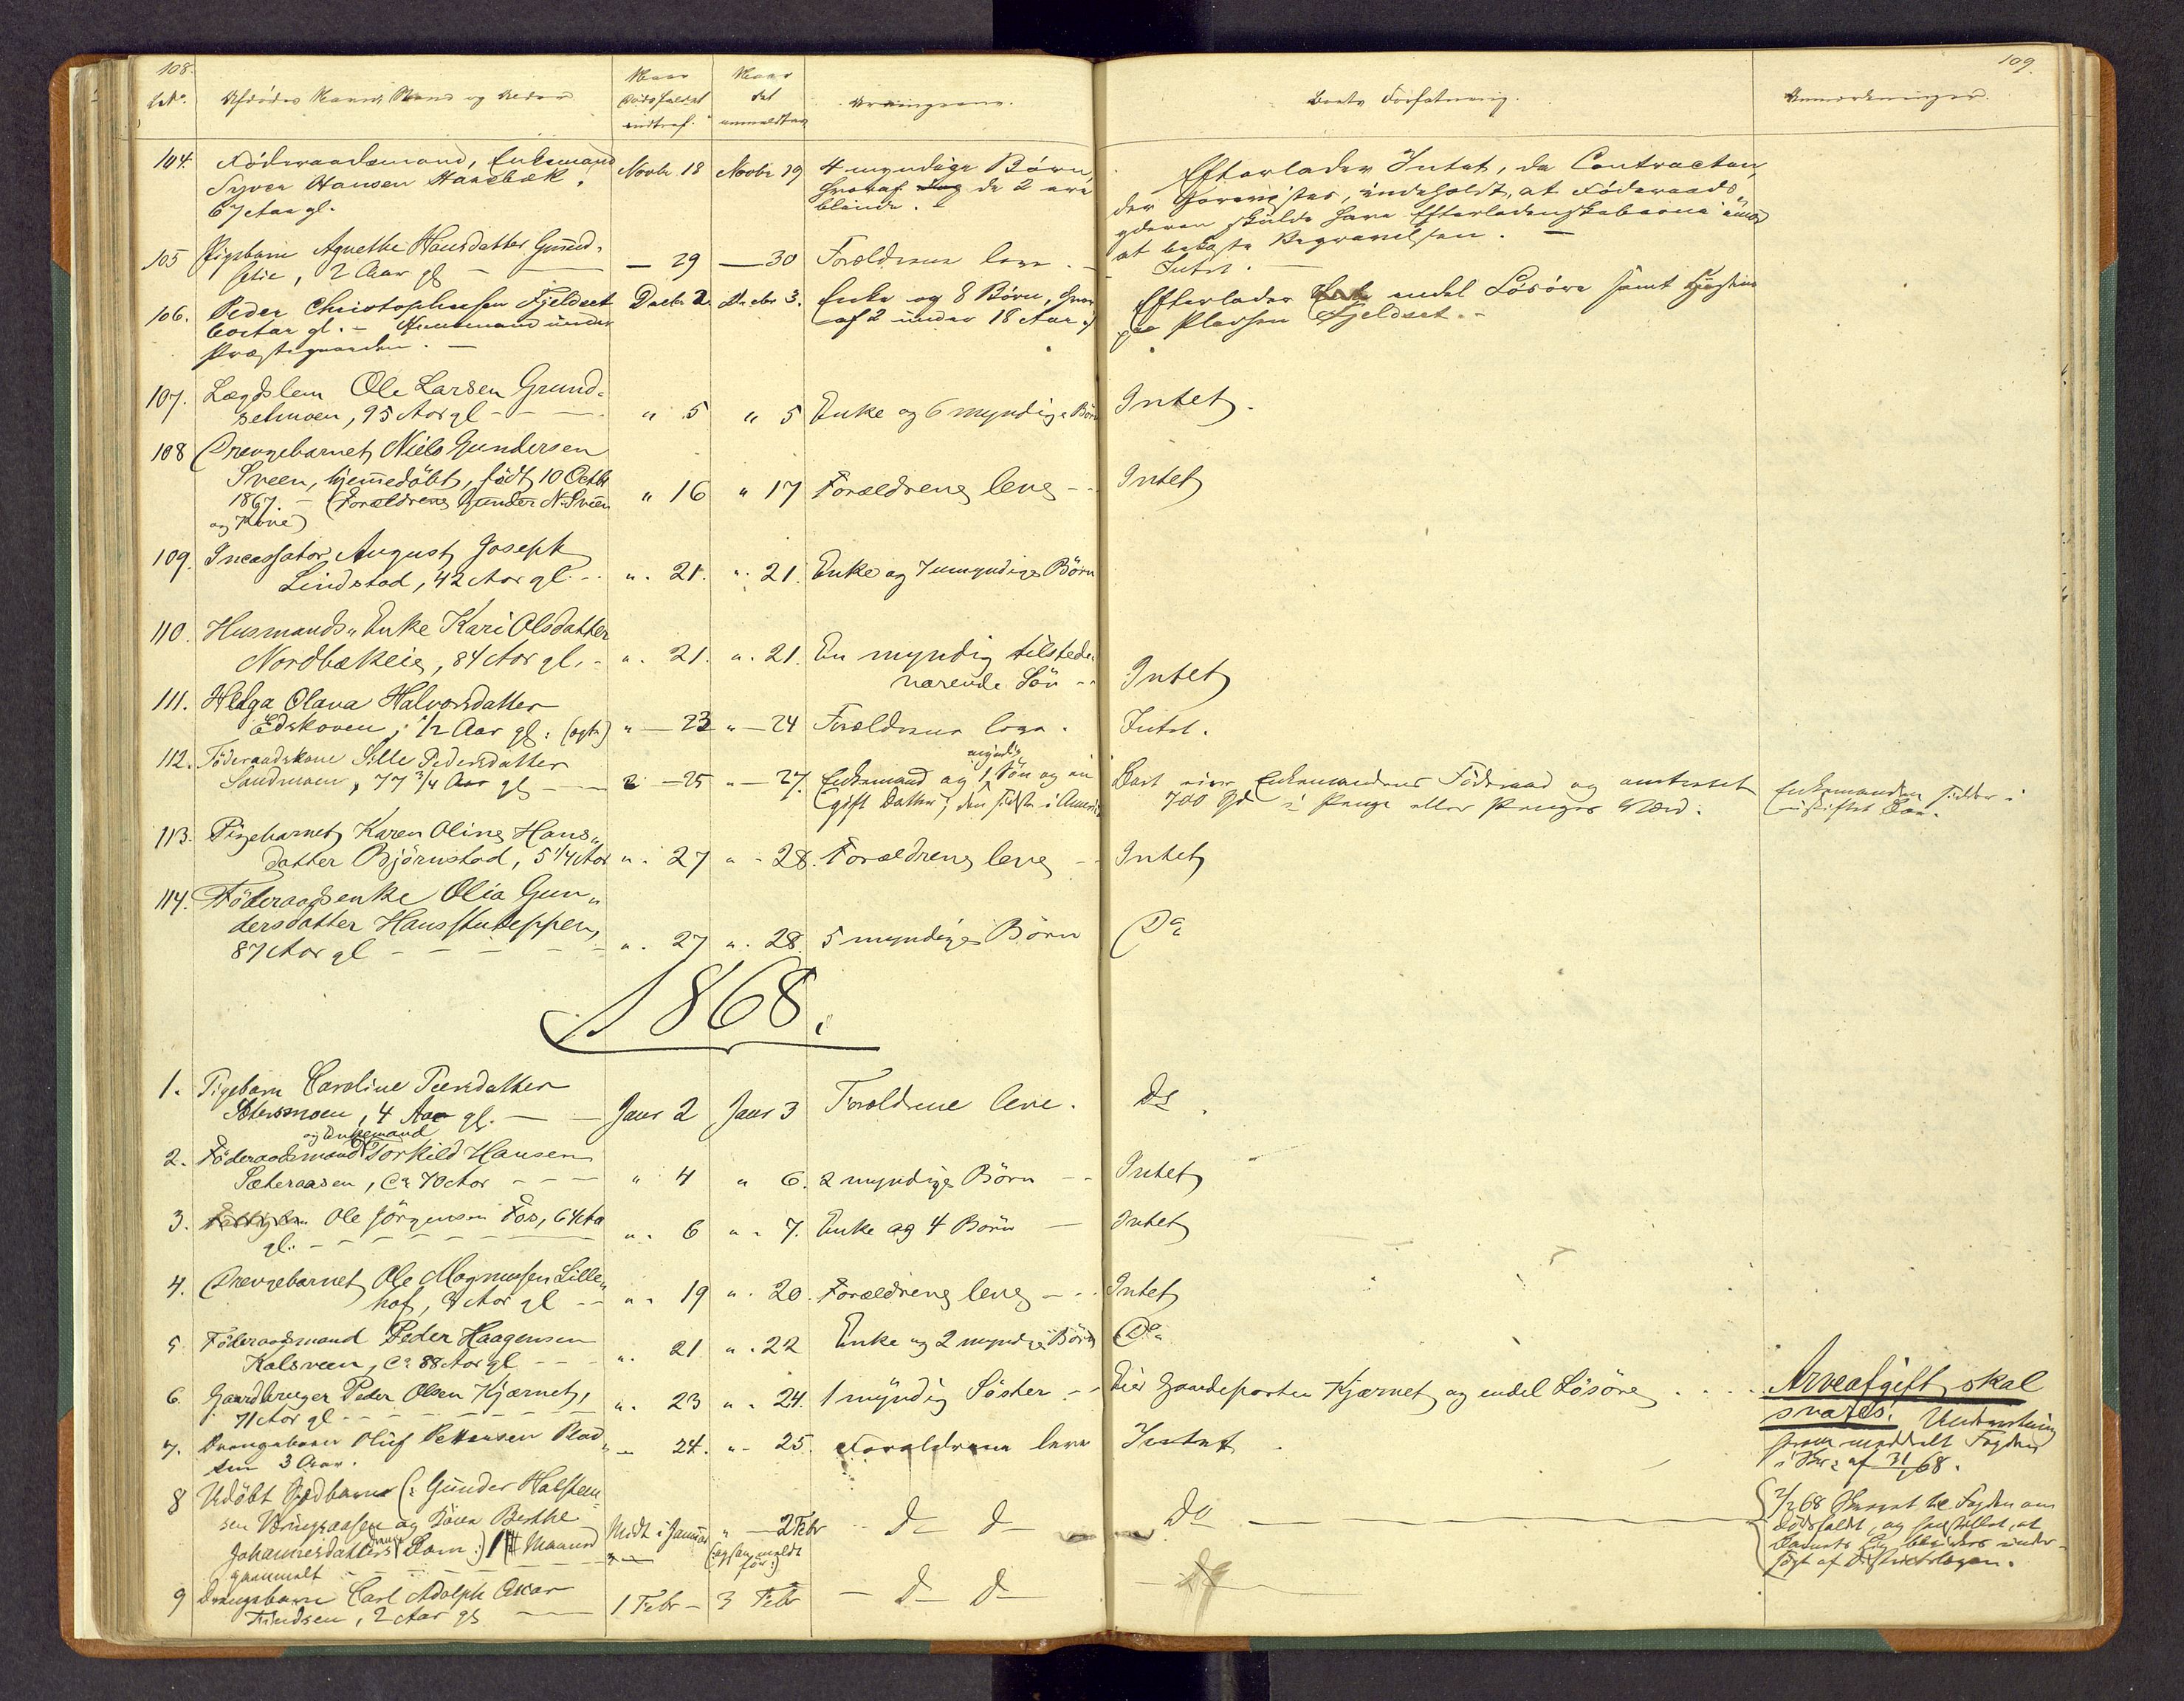 108.
109.
LNo. Afdødes Navn, Stand og Alder
Naar Dødsfaldet indtraf.
Naar det anmeldtes
Arvingerne.
Boets Forfatning.
Anmærkninger.
104. Föderaadsmand, Enkemand
Syver Hansen Hanebæk,
67 Aar gl.
Novbr 18 Novbr 19
4 myndige Børn,
hvoraf de 2 ere
blinde.
Efterlader Intet, da Contracten,
der forevistes, indeholdt, at Föderaads
yderen skulde have Efterladenskaberne imod
at bekoste Begravelsen. —
105 Pigebarn Agnethe Hansdatter Grund-
setie, 2 Aar gl — 29 — 30 Forældrene leve. —
Intet. —
106. Peder Christophersen Fjeldset
Aar gl. — Huusmand under
Præstegaarden. —
Decbr 2. Decbr 3. Enke og 8 Børn, hvor
af 2 under 18 Aar.
Efterlader endel Lösöre samt Huse
paa Pladsen Fjeldset. -
107. Lægdslem Ole Larsen Grund-
setmoen, 95 Aar gl - - -
" 5 " 5 Enke og 6 myndige Børn
Intet.
108 Drengebarnet Niels Gundersen
Sveen, hjemmedöbt, födt 10 Octbr
1867. - (Forældrene Gunder N. Sveen
og Kone)
" 16 " 17 Forældrene leve - -
Intet
109. Incassator August Joseph
Lindstad, 42 Aar gl. - -
". 21. ". 21. Enke og 7 umyndige Börn
110. Husmands" Enke Kari Olsdatter
Nordbækeie, 84 Aar gl. -
". 21. ". 21. En myndig tilstede-
værende Sön - -
Intet
111. Helga Olava Halvorsdatter
Edskoven, 1/2 Aar gl: (ægte)
" — 23 " — 24 Forældrene leve.
Intet.
112. Föderaadskone Sille Pedersdatter
Sandmoen, 77 3/4 Aar gl —
— 25 " — 27. Enkemand og 1 myndig Sön og en
gift Datter, den sidste i Amerika
Boet eier Enkemandens Föderaad og omtrent
700 Spd i Penge eller Penges Værd.
Enkemanden sidder i
uskiftet Bo.
113. Pigebarnet Karen Oline Hans"
datter Björnstad, 5 1/4 Aar
". 27 " - 28. Forældrene leve - -
Intet
114. Föderaadsenke Olia Gun"
dersdatter Hansstuteppen,
87 Aar gl - - - - -
". 27 ". 28. 5 myndige Börn
Do
1868.
1. Pigebarn Caroline Peersdatter
Stensmoen, 4 Aar gl. — —
Janr 2 Janr 3 Forældrene leve.
Do.
og Enkemand
2. Föderaadsmand Torkild Hansen
Sæteraasen, Ca 70 Aar - - -
" 4 " 6. 2 myndige Börn - -
Intet
3. Ole Jörgensen Fos, 64 Aa
gl. - - - - - -
". 6 " - 7. Enke og 4 Börn —
Intet
4. Drengebarnet Ole Magnussen Lille"
hof, 3 Aar gl - -
" - 19 " . 20. Forældrene leve - - -
Intet
5. Föderaadsmand Peder Haagensen
Kalsveen, Ca 88 Aar gl - - -
". 21 ". 22 Enke og 2 myndige Börn
Do.
6. Gaardbruger Peder Olsen Kjærnet,
71 Aar gl - - - - - - -
". 23 ". 24. 1 myndig Söster - -
Eier Gaardeparten Kjærnet og endel Lösöre . . . .
Arveafgift skal
svares. Underretning
herom meddelt Fogden
i Brev af 31/1 68.
7. Drengebarn Oluf Pettersen Blad
3 Aar.
" — 24. " - 25. Forældrene leve
Intet.
8 Udöbt Gudbarn (: Gunder Halsten-
sen Væringsaasen og Kone Berthe
Johannesdatters Barn:) 1 Maaned
gammelt
Midt i Januar " — 2 Febr
D— D—
Do —
2/2 68 til Fogden om
Dödsfaldet, og henstillet, at
Barnets Lig besigtes under-
sögt af Districtslægen.
9 Drengebarn Carl Adolph Oscar
Trindsen, 2 Aar gl —
1 Febr - 3 Febr — D— D—